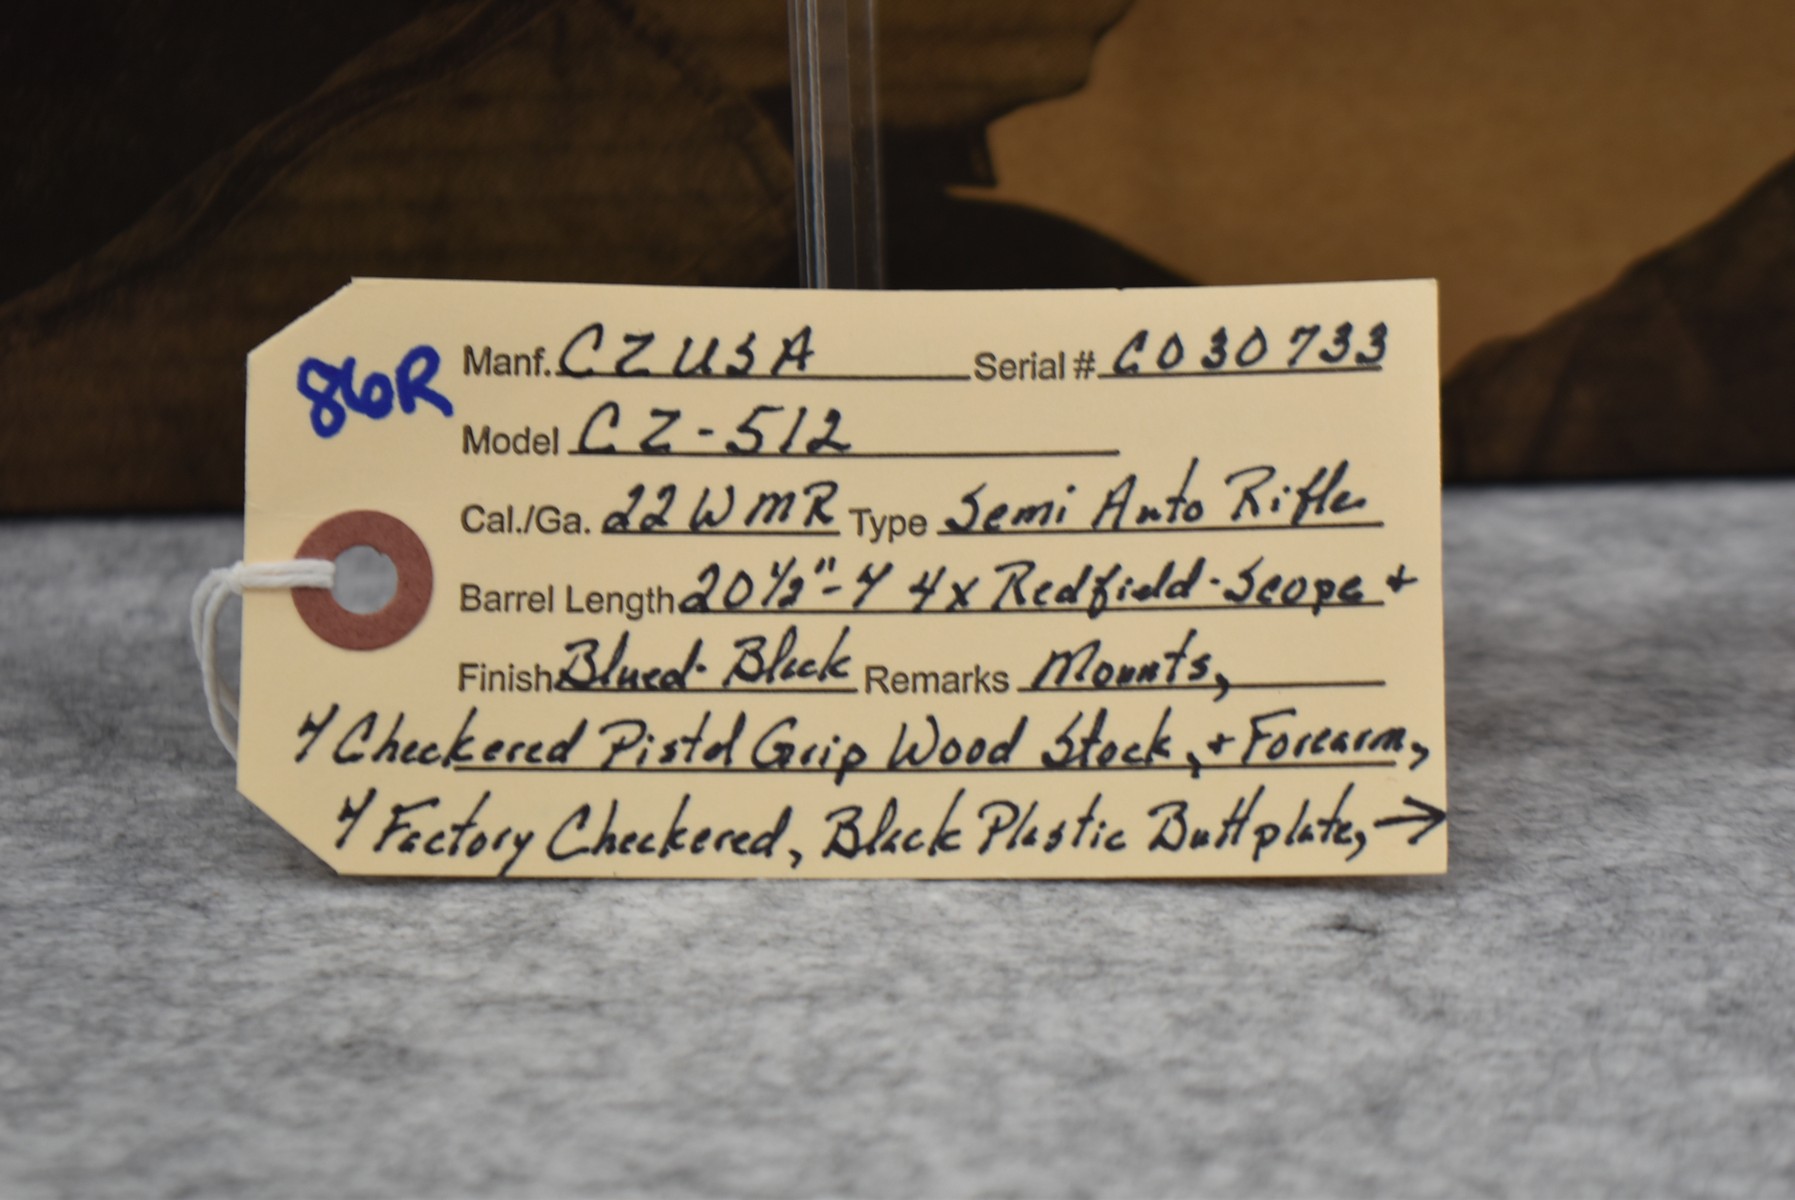 86R
Manf. CZ USA Serial # C030733
Model CZ-512
Cal./Ga. 22 WMR Type Semi Auto Rifle
Barrel Length 20 1/2" - 4x Redfield-Scope +
Finish Blued-Black Remarks Mounts,
Checkered Pistol Grip Wood Stock, + Forearm,
Factory Checkered, Black Plastic Buttplate, →